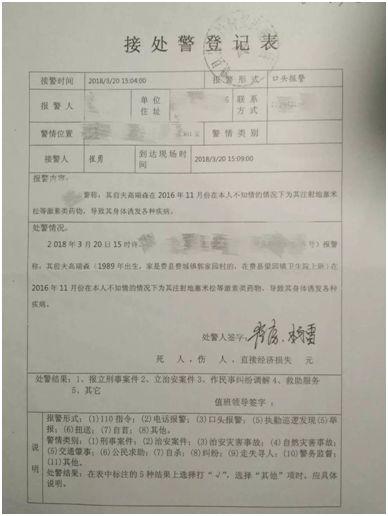 接处警登记表
接警时间 2018/3/20 15:04:00 报警形式 口头报警
报警人 单位住址 联系方式
警情位置 警情类别
接警人 崔勇 到达现场时间 2018/3/20 15:09:00
报警内容:
警称,其前夫高瑞森在2016年11月份在本人不知情的情况下为其注射地塞米
松等激素类药物,导致其身体诱发各种疾病。
处警情况。
2018年3月20日15时许 号)报警
称,其前夫高瑞森(1989年出生,家是费县费城镇郭家园村的,在费县梁邱镇卫生院上班)在
2016年11月份在本人不知情的情况下为其注射地塞米松等激素类药物,导致其身体诱发各种
疾病。
处警人签字:
死 人,伤 人,直接经济损失 元
处警结果:1、报立刑事案件 2、立治安案件 3、作民事纠纷调解 4、救助服务
5、其它
值班领导签字:
说明
报警形式:(1)110指令;(2)电话报警;(3)口头报警;(5)执勤巡逻发现(5)举
报;(6)扭送;(7)自首;(8)其他。
警情类别:(1)刑事案件;(2)治安案件;(3)治安灾害事故;(4)自然灾害事故;
(5)交通肇事;(6)公民求助;(7)自杀;(8)纠纷;(9)走失寻人;(10)警务监督;
(11)其他。
处警结果:在表中标注的5种结果上选择打“√”,选择“其他”项时,应具体
说明。